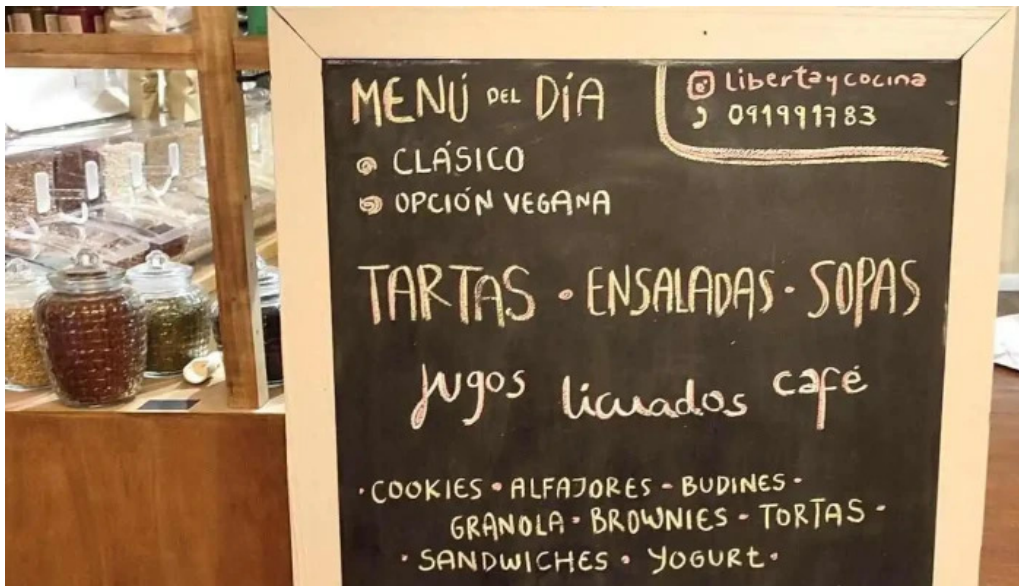 MENÚ DEL DÍA
libertaycocina
091991783
CLÁSICO
OPCIÓN VEGANA
TARTAS · ENSALADAS · SOPAS
jugos licuados café
· COOKIES · ALFAJORES - BUDINES -
GRANOLA · BROWNIES - TORTAS -
· SANDWICHES · YOGURT ·